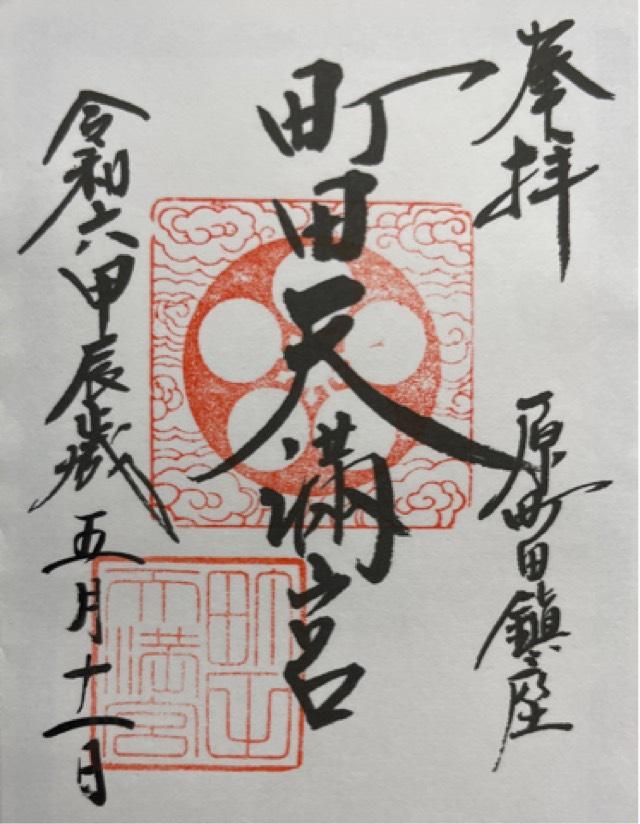 奉拝
原町田鎮座
町田天満宮
令和六甲辰歳五月十一日
町田天満宮